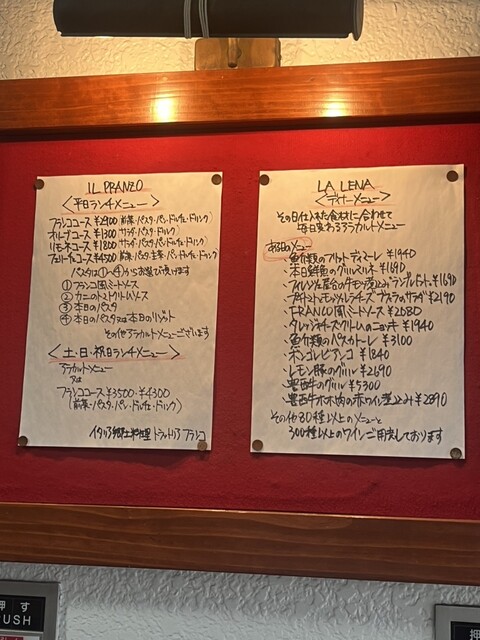 IL PRANZO
<平日ランチメニュー>
フランココース ¥2900(前菜・パスタ・パン・ドルチェ・ドリンク)
オリーブコース ¥1300(サラダ・パスタ・ドリンク)
リモネコース ¥1800(サラダ・パスタ・パン・ドルチェ・ドリンク)
フェリーチェコース ¥4500(前菜・パスタ・主菜・パン・ドルチェ・ドリンク)
パスタは①〜④からお選び頂けます
① フランコ風ミートソース
② カニのトマトクリームソース
③ 本日のパスタ
④ 本日のパスタ又は本日のリゾット
その他アラカルトメニューございます
<土・日・祝日ランチメニュー>
アラカルトメニュー
又は
フランココース ¥3500・¥4300
(前菜・パスタ・パン・ドルチェ・ドリンク)
イタリア郷土料理 トラットリア フランコ
LA CENA
<ディナーメニュー>
その日仕入れた食材に合わせて
毎日変わるアラカルトメニュー
ある日のメニュー
・魚介類のフリットディマーレ ¥1940
・本日鮮魚のグリルマリネ ¥1690
・フィレンツェ屋台の牛モツ煮込み ランプレドット ¥1690
・プチトマトとモッツァレラチーズ ブッラータのサラダ ¥2190
・FRANCO風ミートソース ¥2080
・タレッジョチーズクリームのニョッキ ¥1940
・魚介類のペスカトーレ ¥3100
・ボンゴレビアンコ ¥1840
・レモン豚のグリル ¥2690
・豊西牛のグリル ¥5300
・豊西牛ホホ肉の赤ワイン煮込み ¥2890
その他30種以上のメニューと
300種以上のワインご用意しております
押す
PUSH
押